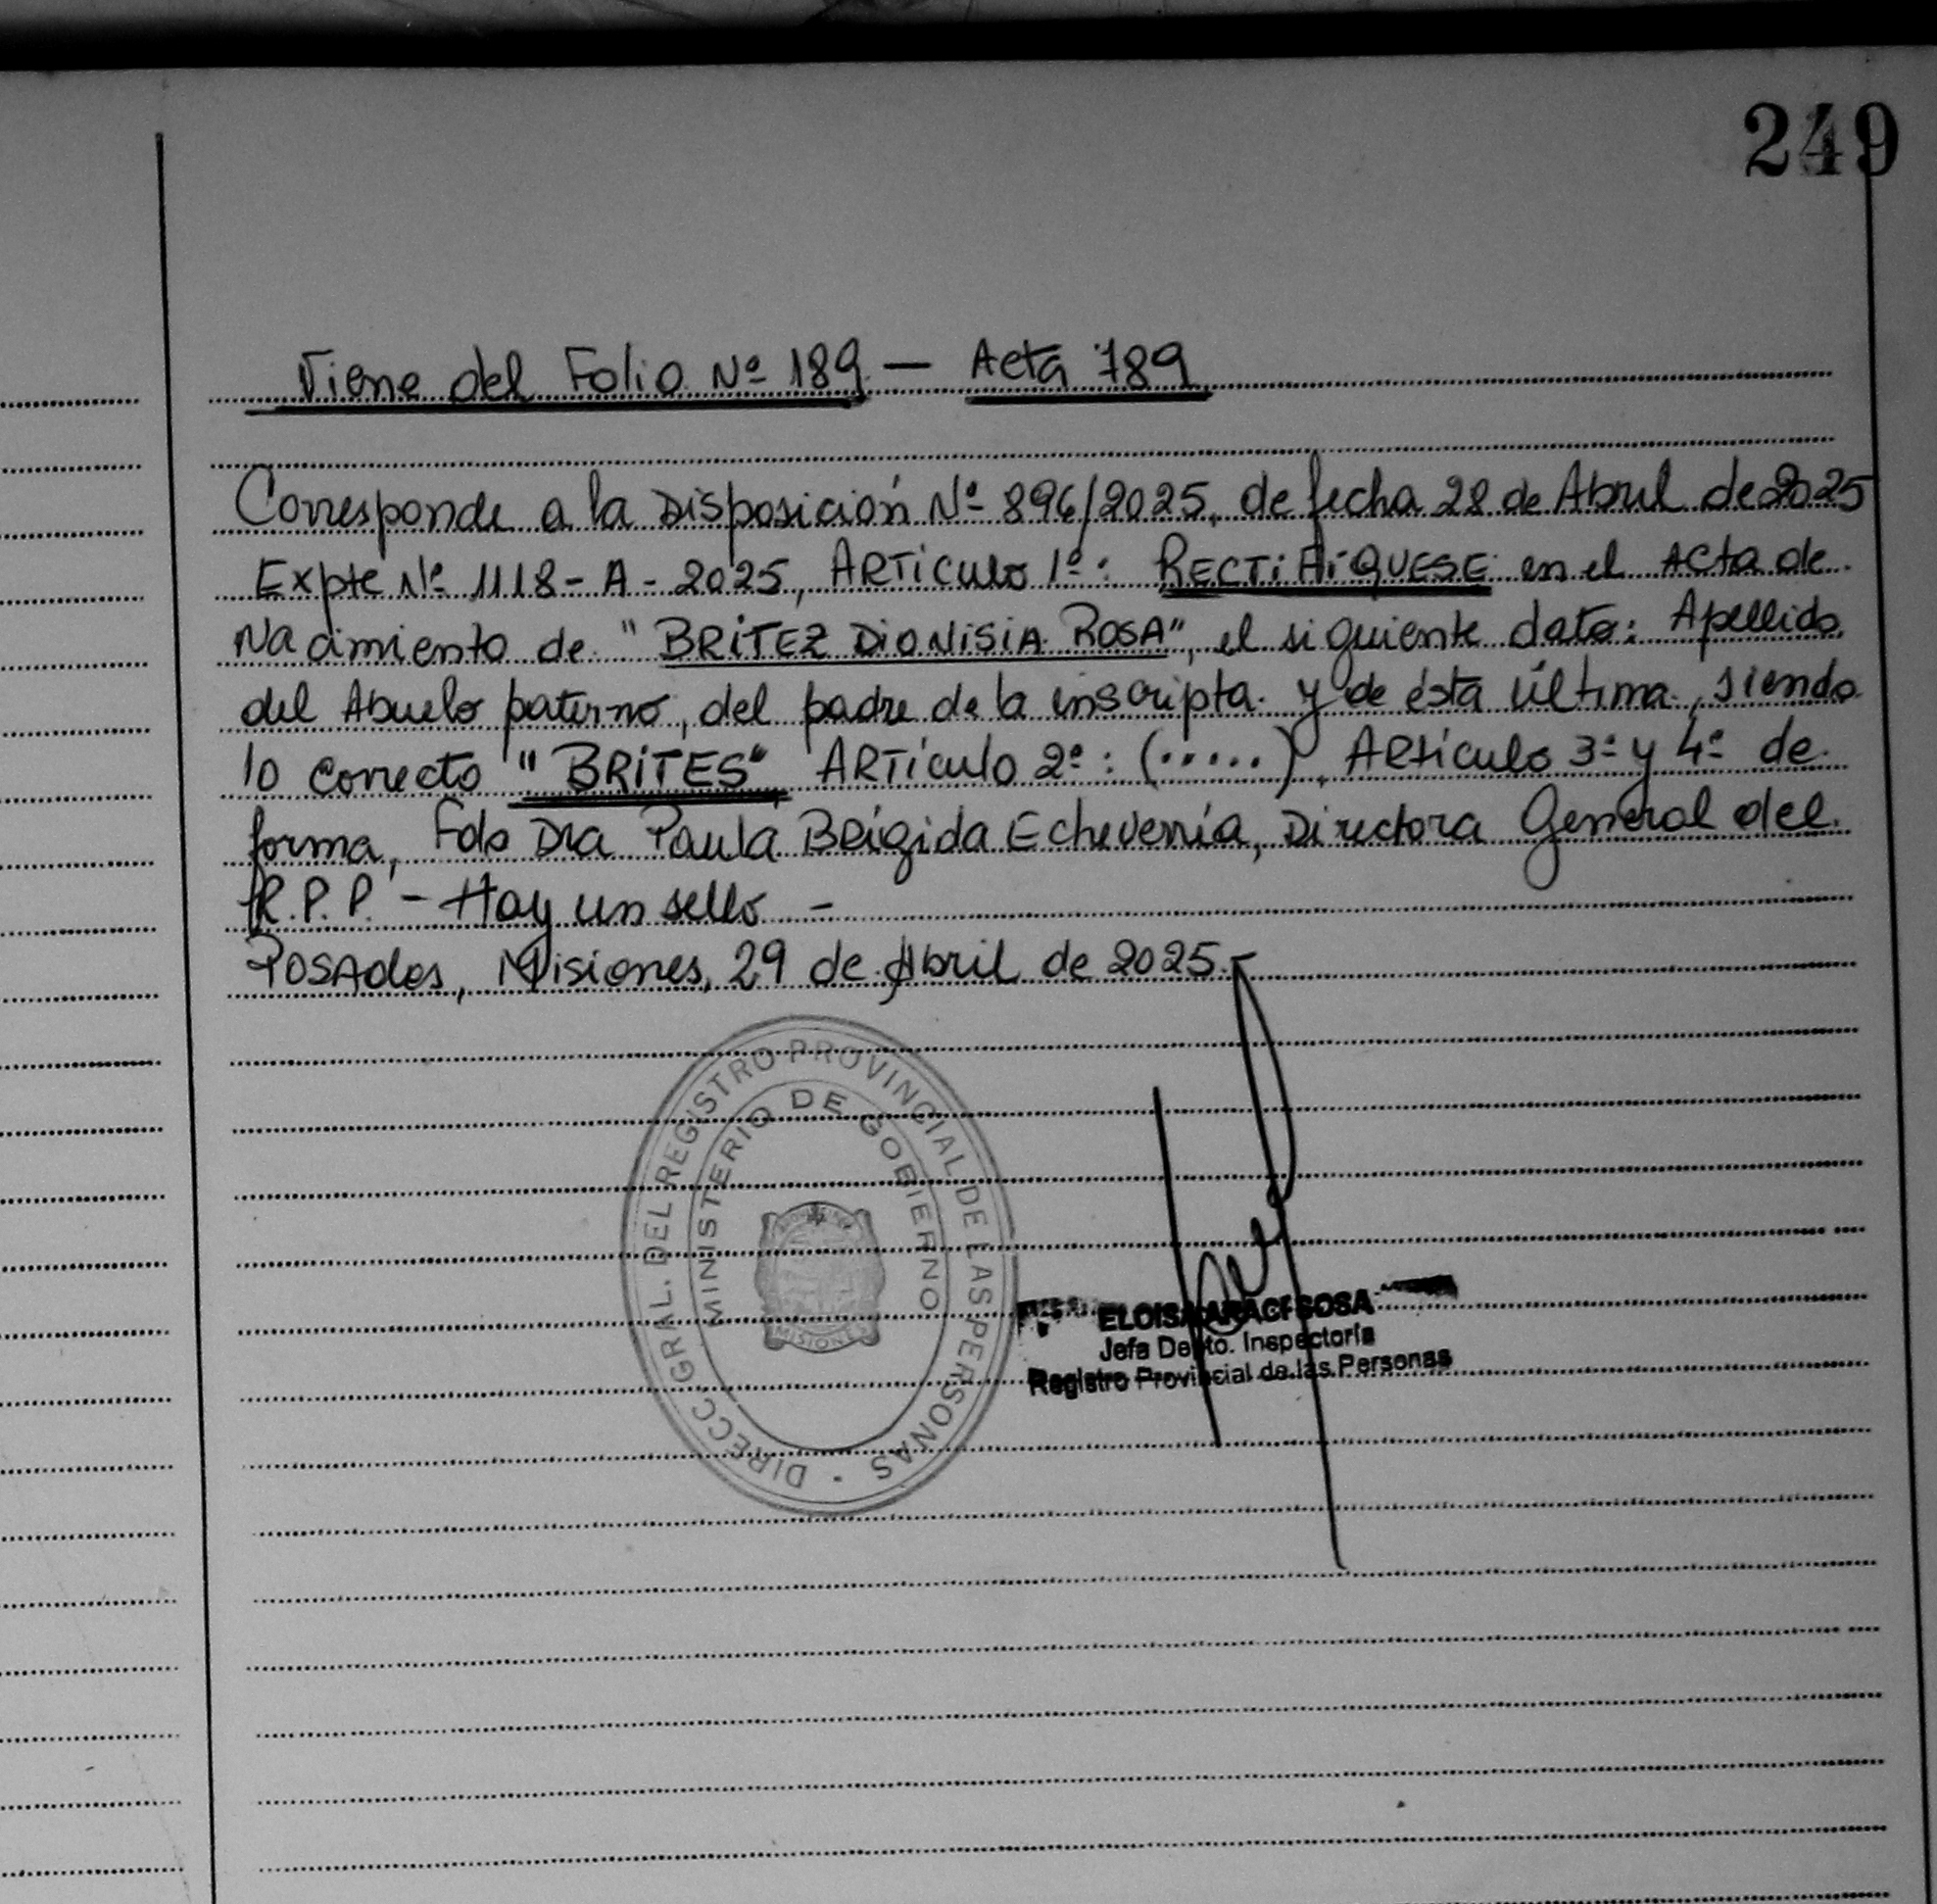 249
Viene del Folio Nº 189 — Acta 789
Corresponde a la Disposición Nº 896/2025, de fecha 28 de Abril de 2025
Expte Nº 1118-A-2025, ARTÍCULO 1º: RECTIFIQUESE en el ACTA de
Nacimiento de "BRITEZ DIONISIA ROSA", el siguiente dato: Apellido
del Abuelo paterno, del padre de la inscripta y de ésta última, siendo
lo correcto "BRITES", ARTÍCULO 2º: (.....), Artículo 3º y 4º de
forma, Fdo Dra Paula Brígida Echeverría, Directora General del
R.P.P. - Hay un sello -
Posadas, Misiones, 29 de Abril de 2025.-
DIRECC GRAL. DEL REGISTRO PROVINCIAL DE LAS PERSONAS
MINISTERIO DE GOBIERNO
MISIONES
ELOISA ARACI SOSA
Jefa Depto. Inspectoría
Registro Provincial de las Personas